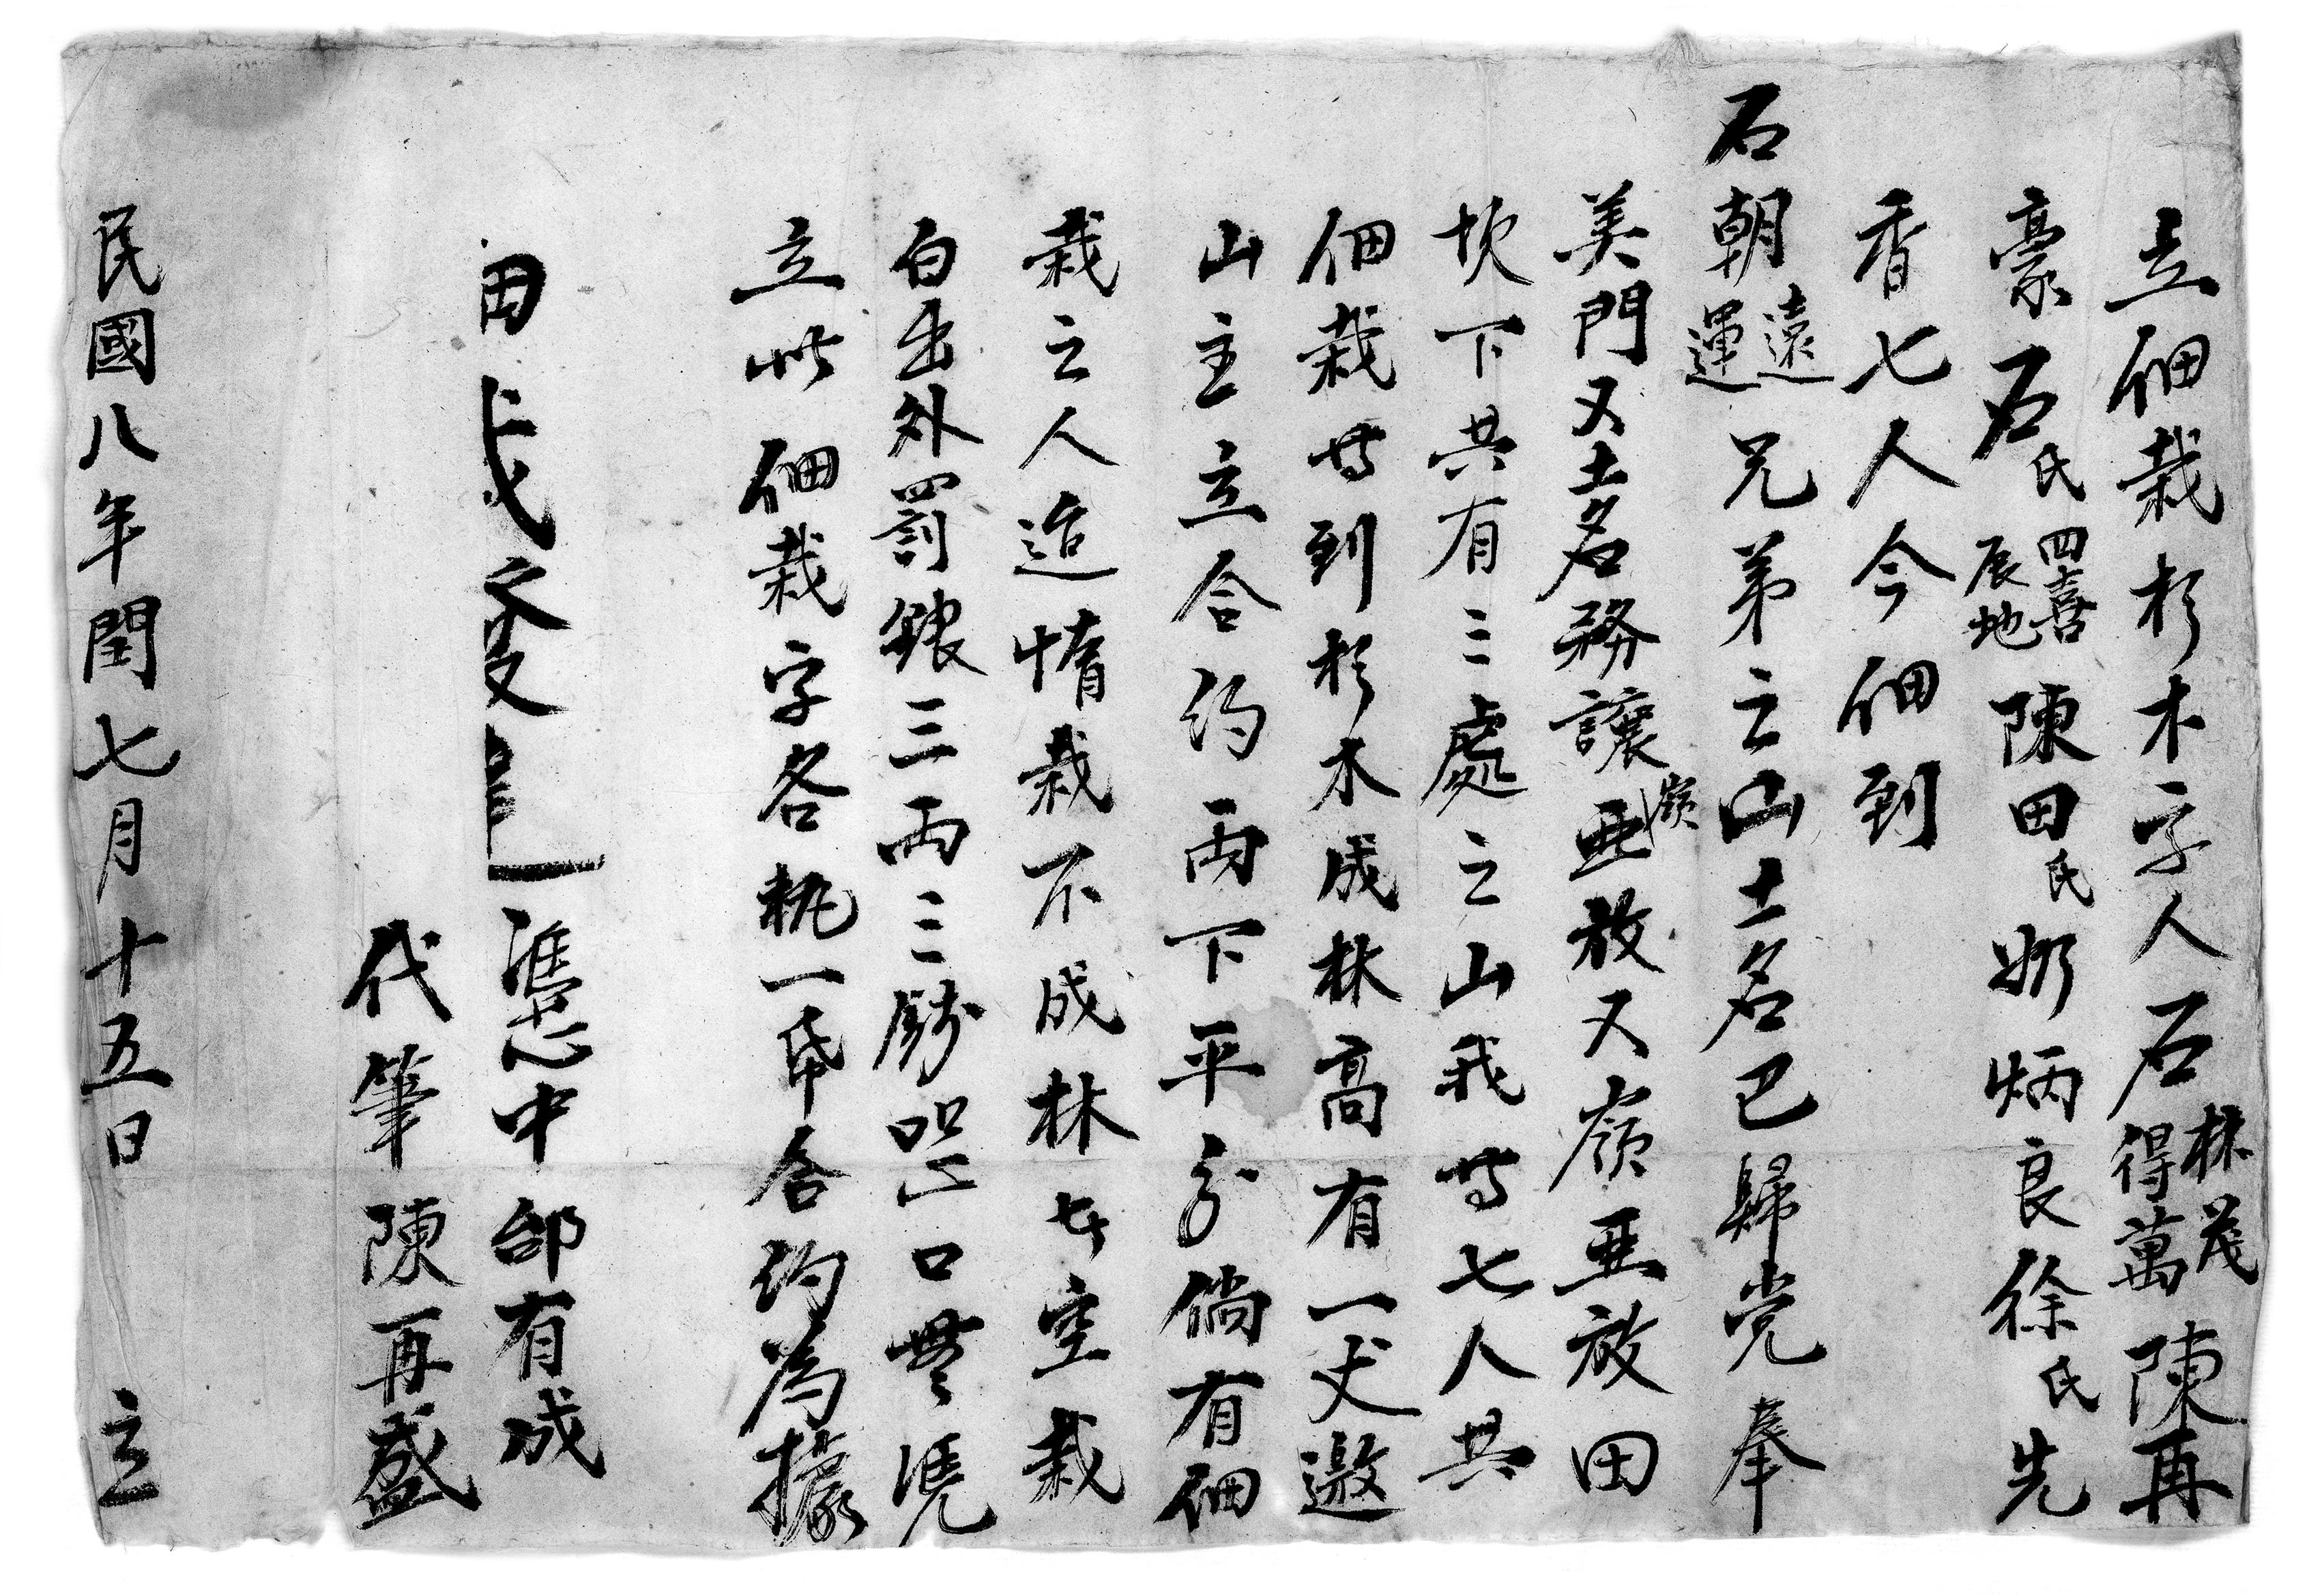 立佃栽杉木字人石林茂得萬陳再
豪石氏四喜辰地陳田氏妍炳良徐氏先
香七人今佃到
石朝遠運兄弟之山土名已歸党奉
美門又土名務讓嶺亜放又嶺亜放田
坎下共有三處之山我等七人共
佃栽等到杉木成林高有一丈邀
山主立合约兩下平分倘有佃
栽之人迨惰栽不成林七空栽
白出外罰銀三兩三錢照口無凴
立此佃栽字各執一帋合约為據
憑中邰有成
代筆陳再盛
民國八年閏七月十五日 立